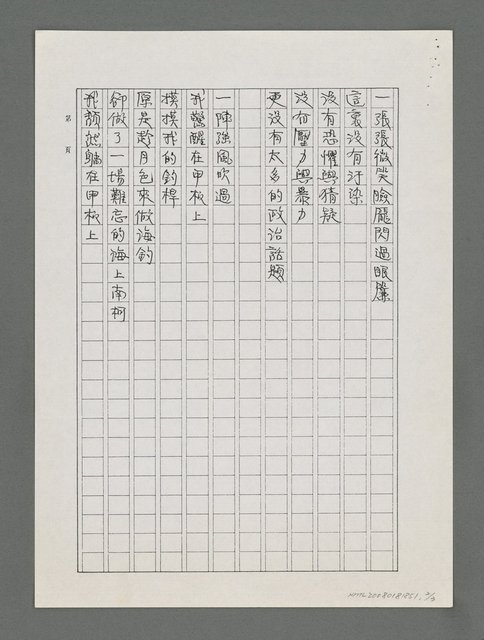 一張張微笑臉龐閃過眼簾
這裏沒有汙染
沒有恐懼與猜疑
沒有壓力與暴力
更沒有太多的政治話題
一陣強風吹過
我驚醒在甲板上
摸摸我的釣桿
原是趁月色來做海釣
卻做了一場難忘的海上南柯
我頹然躺在甲板上
第 頁
NMTL20080181851, 3/3